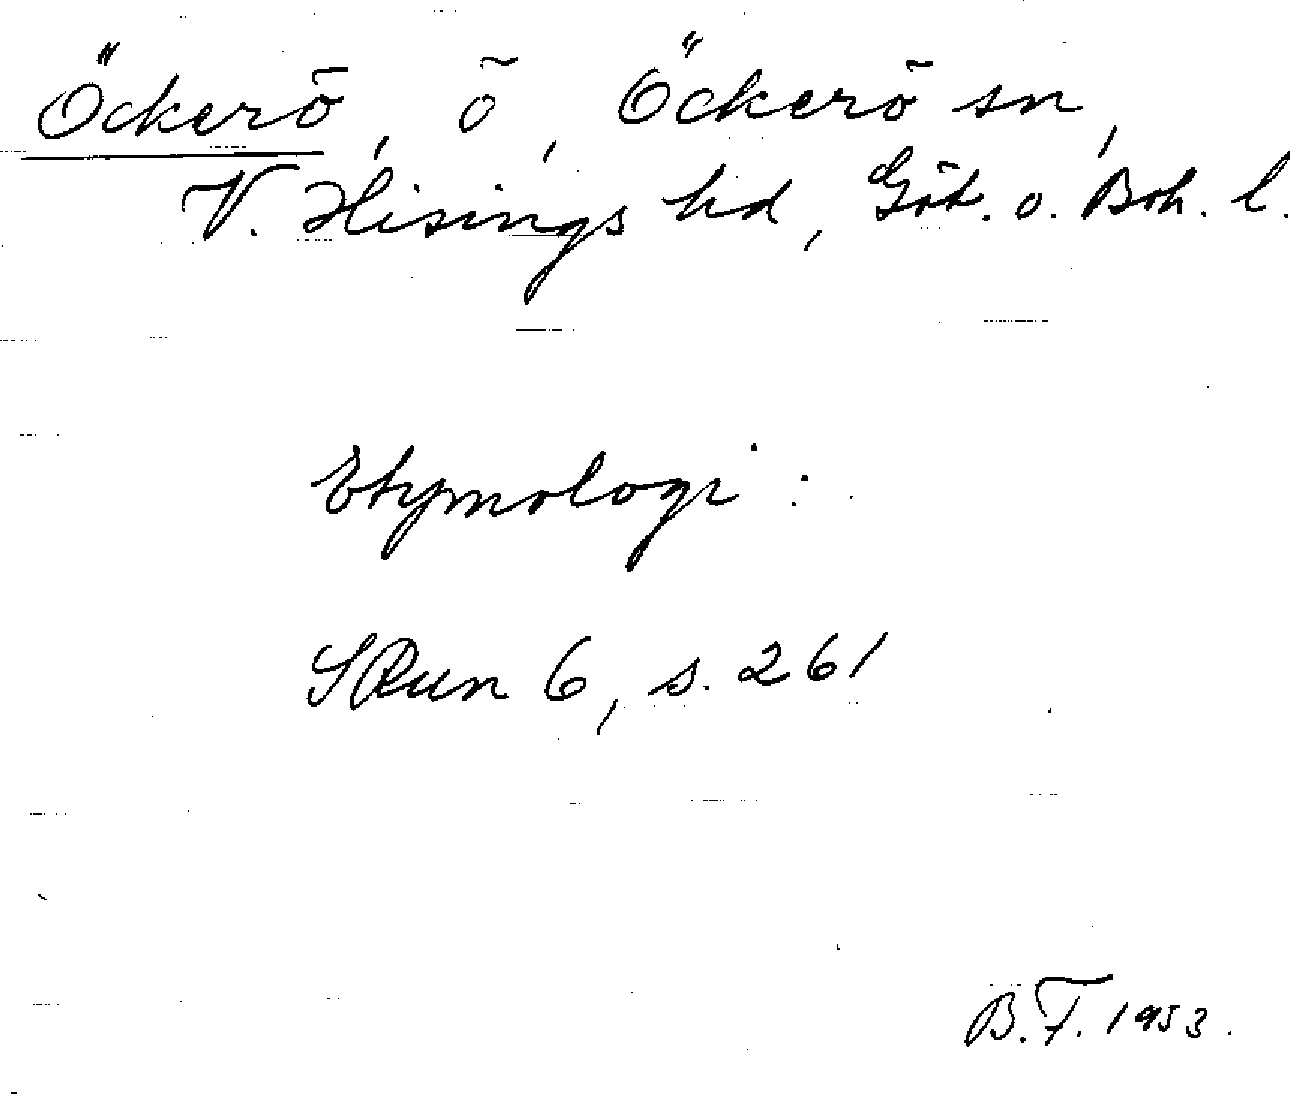 Öckerö, ö, Öckerö sn,
V. Hisings hd, Göt. o. Boh. l.
Etymologi:
SRun 6, s. 261
B.F. 1953.